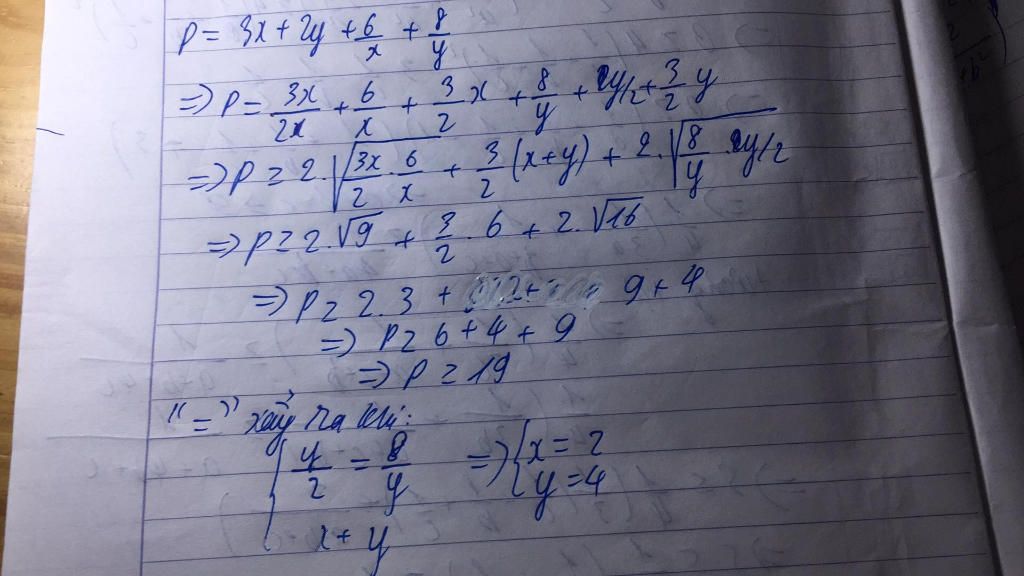 P = 3x + 2y + 6/x + 8/y
=> P = 3x/2x + 6/x + 3/2 x + 8/y + y/2 + 3/2 y
=> P ≥ 2.√(3x/2 . 6/x) + 3/2 (x+y) + 2.√(8/y . y/2)
=> P ≥ 2.√9 + 3/2 . 6 + 2.√16
=> P ≥ 2.3 + 9 + 4
=> P ≥ 6 + 4 + 9
=> P ≥ 19
"=" xảy ra khi:
{ y/2 = 8/y => { x = 2
x + y { y = 4